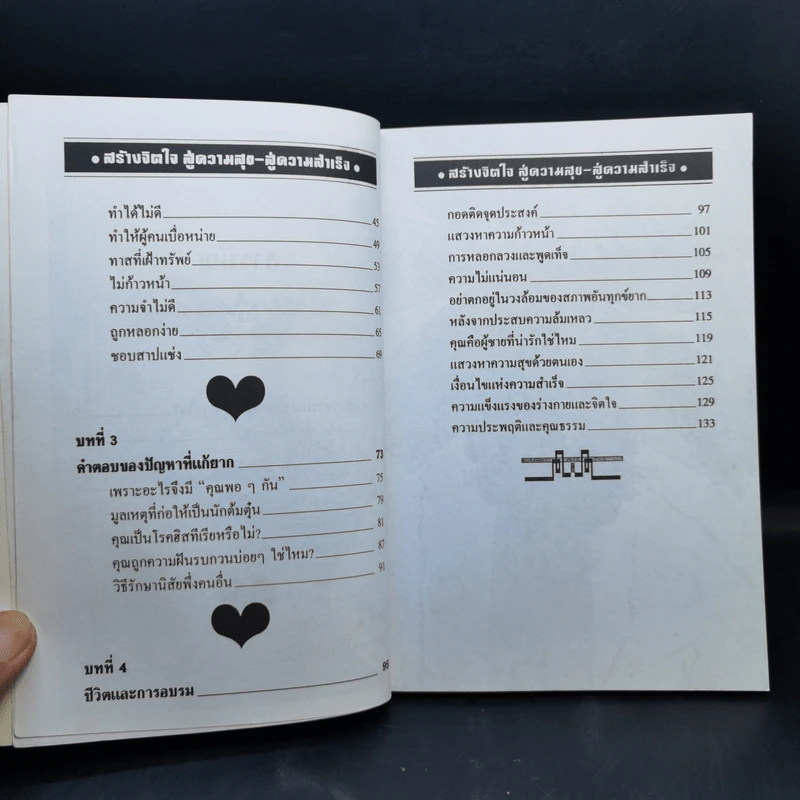 • สร้างจิตใจ สู่ความสุข-สู่ความสำเร็จ •
ทำได้ไม่ดี 45
ทำให้ผู้คนเบื่อหน่าย 49
ทาสที่เฝ้าทรัพย์ 53
ไม่ก้าวหน้า 57
ความจำไม่ดี 61
ถูกหลอกง่าย 65
ชอบสาปแช่ง 69
บทที่ 3
คำตอบของปัญหาที่แก้ยาก 73
เพราะอะไรจึงมี “คุณพอ ๆ กัน” 75
มูลเหตุที่ก่อให้เป็นนักต้มตุ๋น 79
คุณเป็นโรคฮิสทีเรียหรือไม่? 81
คุณถูกความฝันรบกวนบ่อยๆ ใช่ไหม? 87
วิธีรักษานิสัยพึ่งคนอื่น 91
บทที่ 4
ชีวิตและการอบรม 95
• สร้างจิตใจ สู่ความสุข-สู่ความสำเร็จ •
กอดติดจุดประสงค์ 97
แสวงหาความก้าวหน้า 101
การหลอกลวงและพูดเท็จ 105
ความไม่แน่นอน 109
อย่าตกอยู่ในวงล้อมของสภาพอันทุกข์ยาก 113
หลังจากประสบความล้มเหลว 115
คุณคือผู้ชายที่น่ารักใช่ไหม 119
แสวงหาความสุขด้วยตนเอง 121
เงื่อนไขแห่งความสำเร็จ 125
ความแข็งแรงของร่างกายและจิตใจ 129
ความประพฤติและคุณธรรม 133